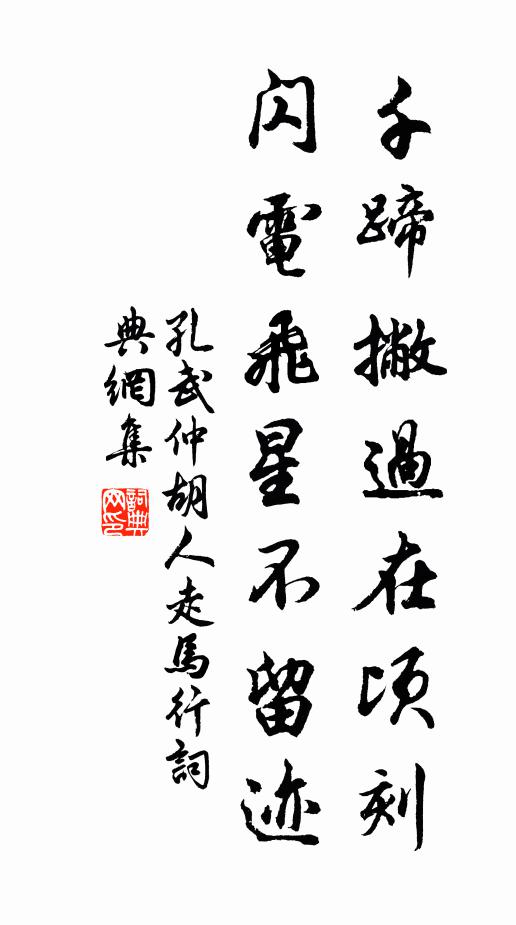 千蹄撇過在頃刻
閃電飛星不留迹
孔武仲胡人走馬行詞
典網集
詞典網印